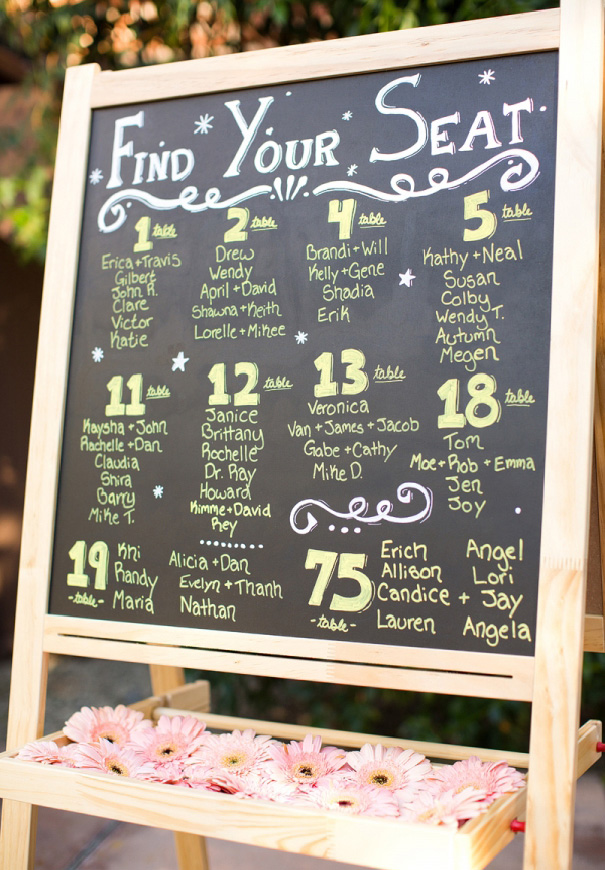 FIND YOUR SEAT
1 table
Erica + Travis
Gilbert
John R.
Clare
Victor
Katie
2 table
Drew
Wendy
April + David
Shawna + Keith
Lorelle + Mikee
4 table
Brandi + Will
Kelly + Gene
Shadia
Erik
5 table
Kathy + Neal
Susan
Colby
Wendy T.
Autumn
Megen
11 table
Kaysha + John
Rachelle + Dan
Claudia
Shira
Barry
Mike T.
12 table
Janice
Brittany
Rochelle
Dr. Ray
Howard
Kimme + David
Rey
13 table
Veronica
Van + James + Jacob
Gabe + Cathy
Mike D.
18 table
Tom
Moe + Rob + Emma
Jen
Joy
19
-table-
Khi
Randy
Maria
Alicia + Dan
Evelyn + Thanh
Nathan
75
-table-
Erich
Allison
Candice + Jay
Lauren
Angel
Lori
Angela